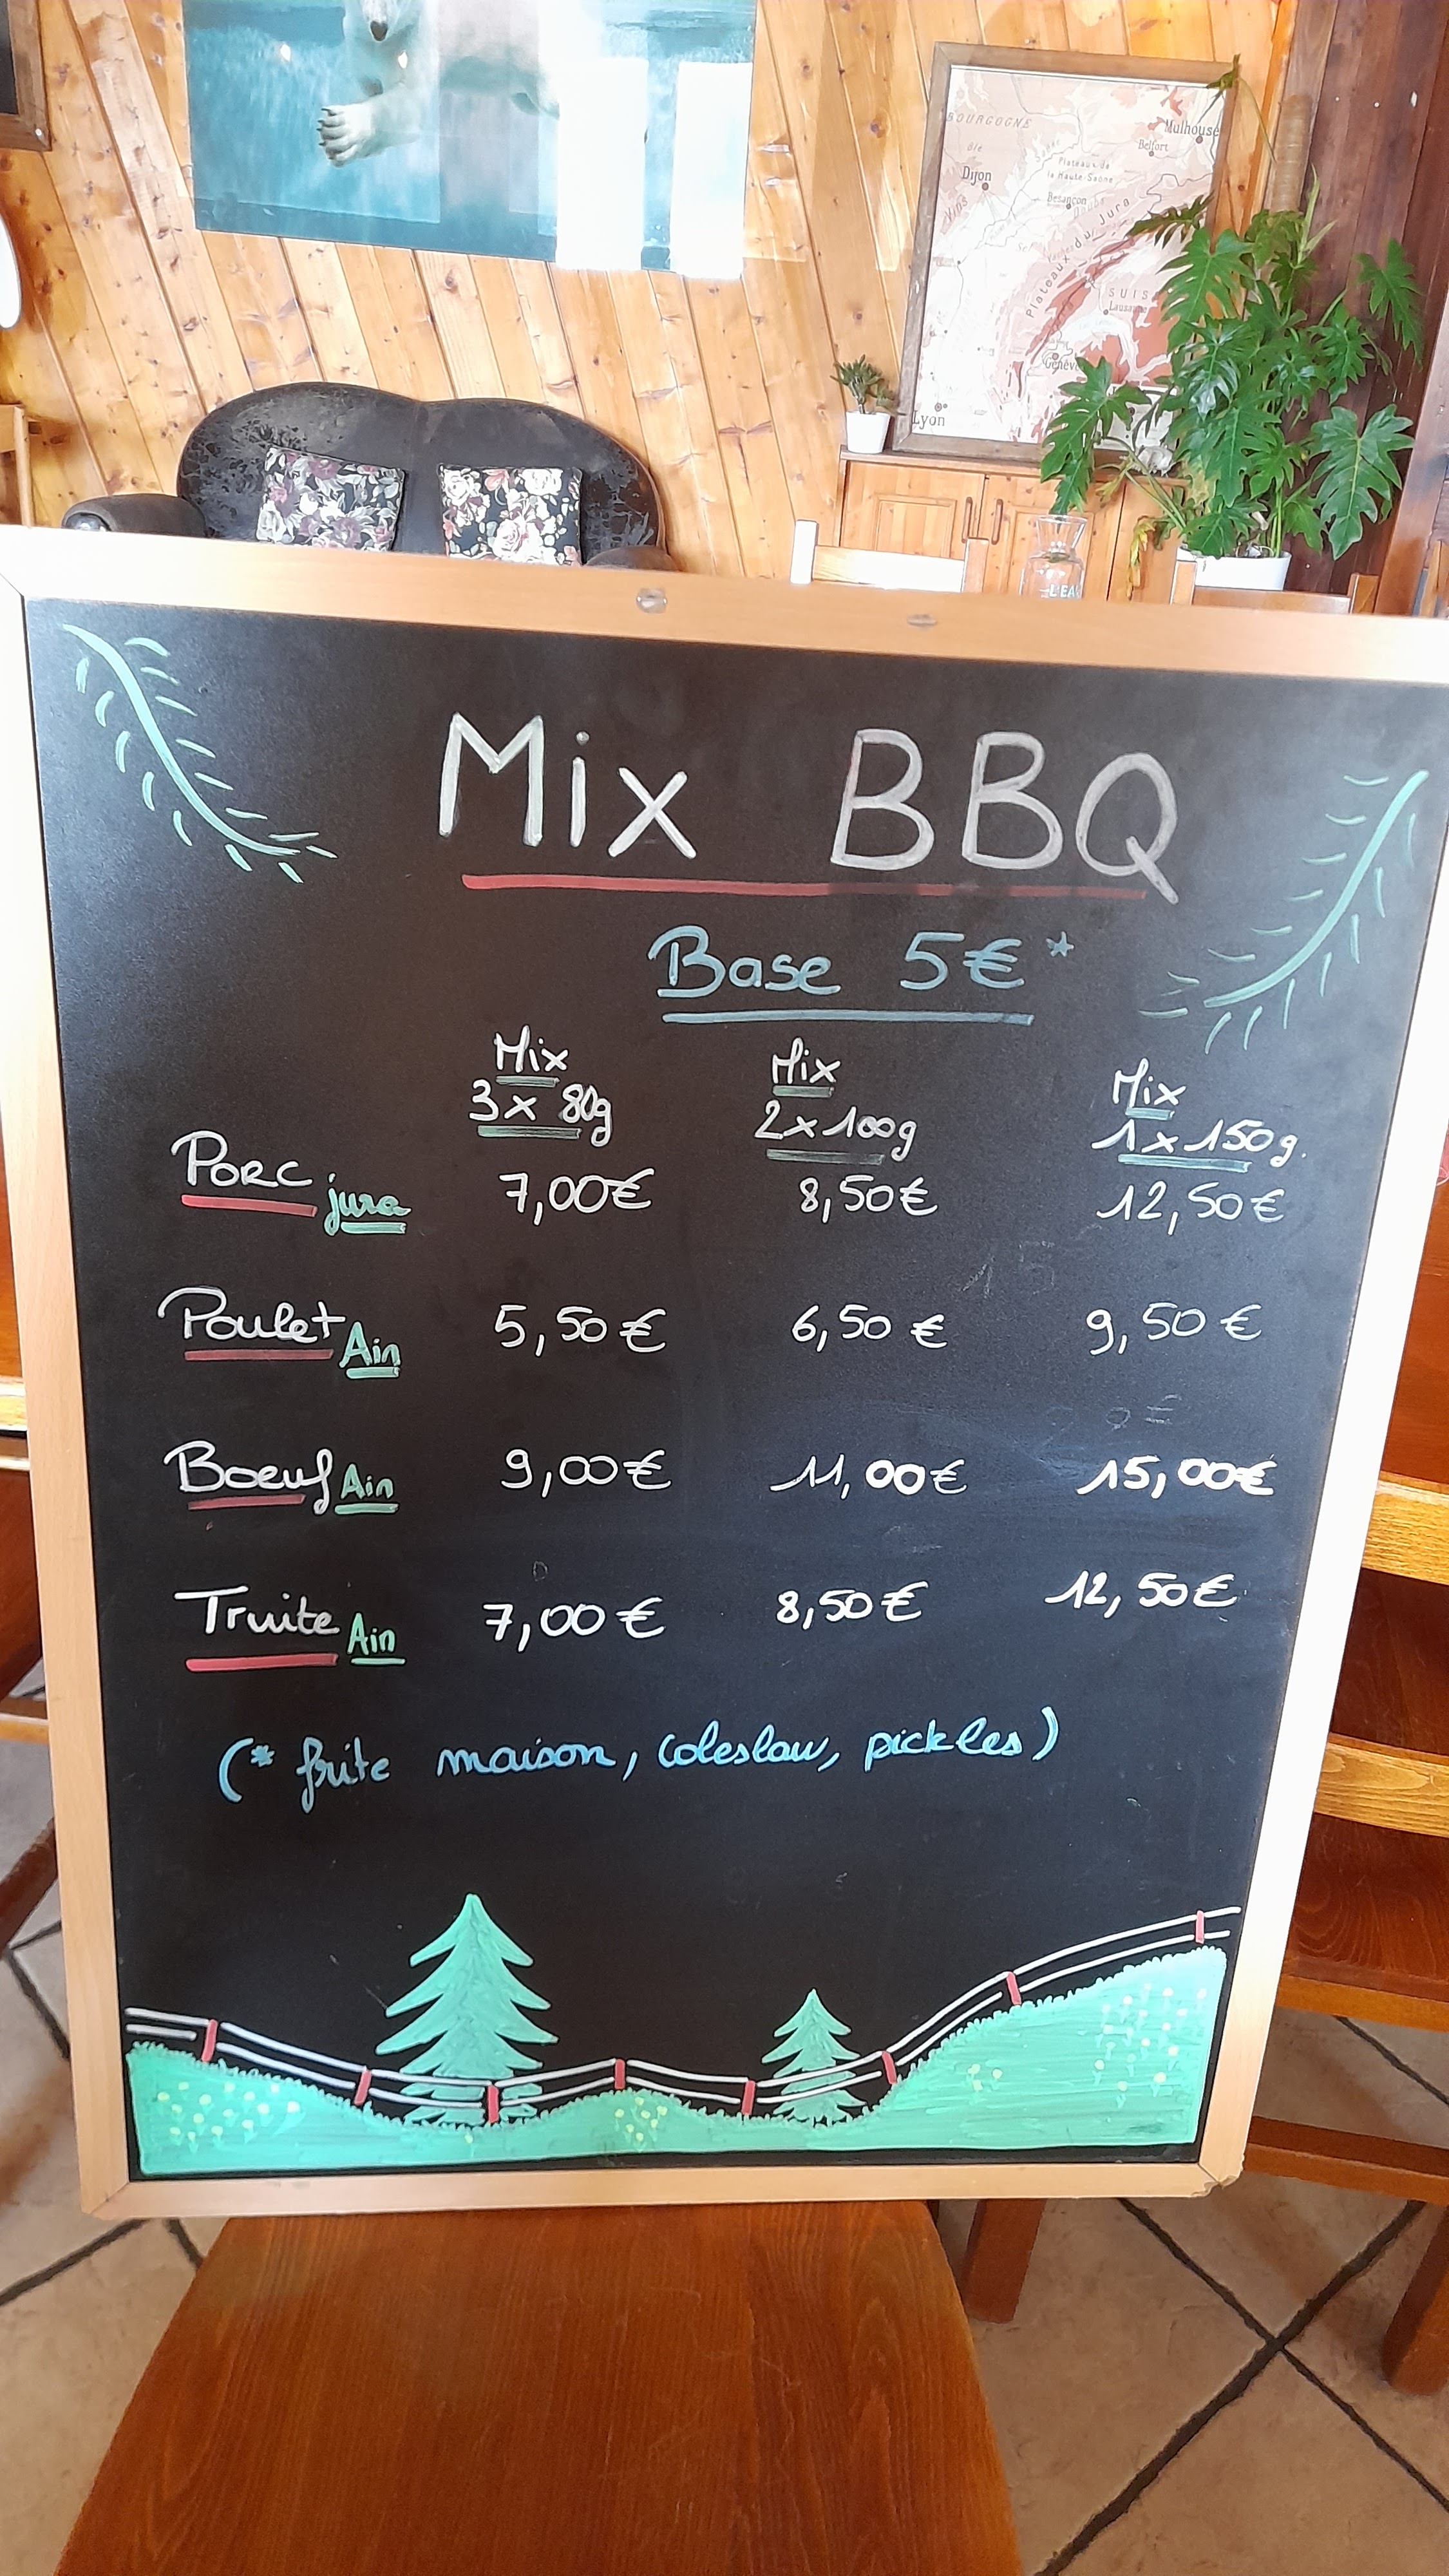 BOURGOGNE
Mulhouse
Belfort
Plateaux de
la Haute-Saône
Dijon
Besançon
Plateaux du Jura
Lausanne
Genève
Lyon
L'EAU
Mix BBQ
Base 5€*
Mix Mix Mix
3x 80g 2x100g 1x150g.
PORC jura 7,00€ 8,50€ 12,50€
Poulet Ain 5,50€ 6,50€ 9,50€
Boeuf Ain 9,00€ 11,00€ 15,00€
Truite Ain 7,00€ 8,50€ 12,50€
(* frite maison, coleslaw, pickles)